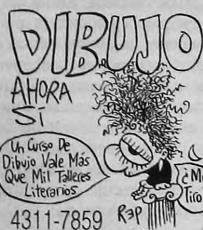 DIBUJO
AHORA
SÍ
Un Curso De
Dibujo Vale Más
Que Mil Talleres
Literarios
¿Me
Tiro
4311-7859
Rep